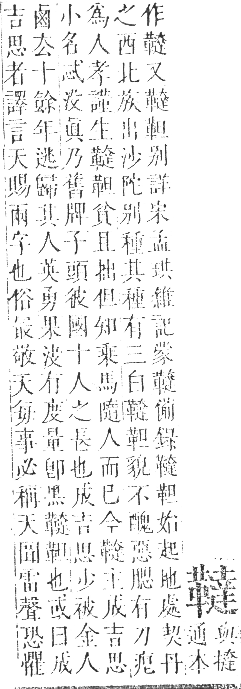 韃與撻通本
作韃又韃靼別詳宋孟珙雜記蒙韃備錄韃靼始起地處契丹
之西北族出沙陀別種其種有三白韃靼貌不醜惡腮有刀疤
為人孝謹生韃靼貧且拙但知乘馬隨人而已今韃主成吉思
小名忒沒真乃舊牌子頭彼國十人之長也成吉思少被金人
鹵去十餘年逃歸其人英勇果決有度量卽黑韃靼也或曰成
吉思者譯言天賜兩字也俗最敬天每事必稱天聞雷聲恐懼